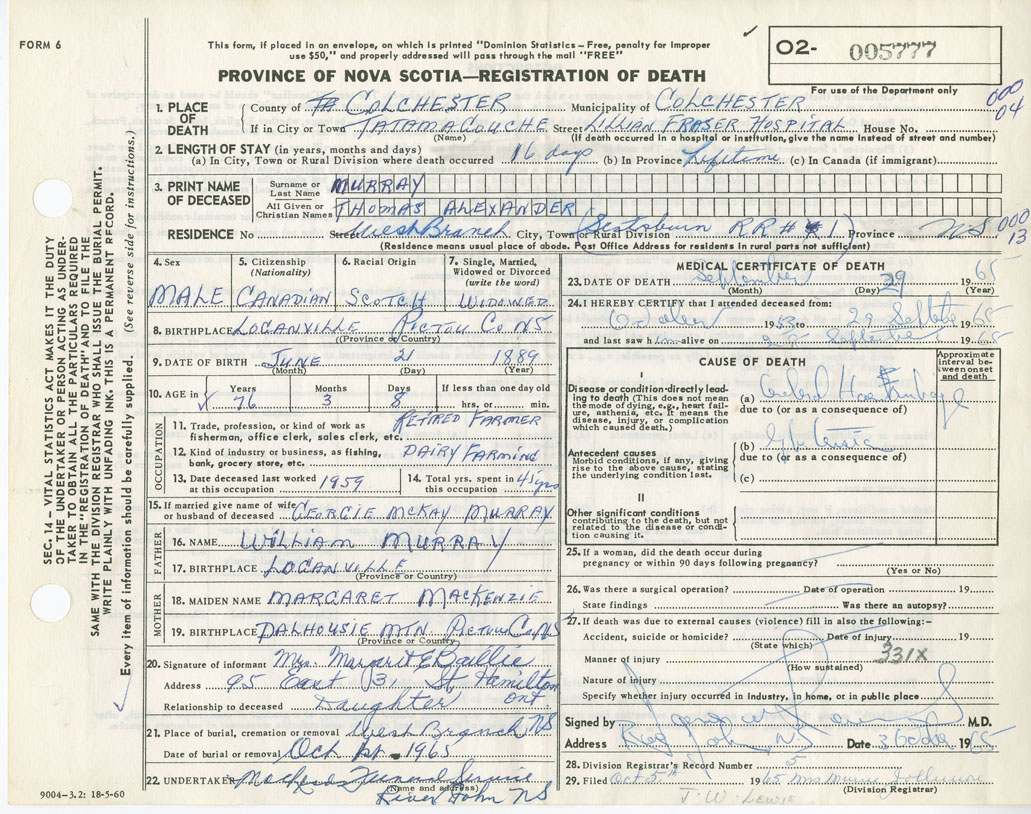 FORM 6
This form, if placed in an envelope, on which is printed "Dominion Statistics – Free, penalty for improper
use $50," and properly addressed will pass through the mail "FREE"
PROVINCE OF NOVA SCOTIA—REGISTRATION OF DEATH
02- 005777
For use of the Department only
000
04
1. PLACE OF DEATH
County of COLCHESTER Municipality of COLCHESTER
If in City or Town TATAMAGOUCHE Street LILLIAN FRASER HOSPITAL House No.
(Name) (If death occurred in a hospital or institution, give the name instead of street and number)
2. LENGTH OF STAY (in years, months and days)
(a) In City, Town or Rural Division where death occurred 16 days (b) In Province Lifetime (c) In Canada (if immigrant)
3. PRINT NAME OF DECEASED
Surname or Last Name MURRAY
All Given or Christian Names THOMAS ALEXANDER
RESIDENCE No Street West Branch City, Town or Rural Division (Scotsburn RR # 1) Province NS
000
13
(Residence means usual place of abode. Post Office Address for residents in rural parts not sufficient)
4. Sex MALE
5. Citizenship (Nationality) CANADIAN
6. Racial Origin SCOTCH
7. Single, Married, Widowed or Divorced (write the word) WIDOWED
8. BIRTHPLACE LOGANVILLE PICTOU CO NS
(Province or Country)
9. DATE OF BIRTH JUNE 21 1889
(Month) (Day) (Year)
10. AGE in Years 76 Months 3 Days 8 If less than one day old hrs. or min.
OCCUPATION
11. Trade, profession, or kind of work as fisherman, office clerk, sales clerk, etc. RETIRED FARMER
12. Kind of industry or business, as fishing, bank, grocery store, etc. DAIRY FARMING
13. Date deceased last worked at this occupation 1959
14. Total yrs. spent in this occupation 41 yrs
15. If married give name of wife or husband of deceased GEORGIE McKAY MURRAY
FATHER
16. NAME WILLIAM MURRAY
17. BIRTHPLACE LOGANVILLE
(Province or Country)
MOTHER
18. MAIDEN NAME MARGARET MACKENZIE
19. BIRTHPLACE DALHOUSIE MTN PICTOU CO NS
(Province or Country)
20. Signature of informant Mrs. Margaret E Baillie
Address 95 East 31 St Hamilton Ont
Relationship to deceased Daughter
21. Place of burial, cremation or removal West Branch NS
Date of burial or removal Oct 1965
22. UNDERTAKER Funeral Service
(Name and address) River John NS
MEDICAL CERTIFICATE OF DEATH
23. DATE OF DEATH September 29 1965
(Month) (Day) (Year)
24. I HEREBY CERTIFY that I attended deceased from:
October 1963 to 29 1965
and last saw him alive on September 1965
CAUSE OF DEATH
Approximate interval between onset and death
I
Disease or condition directly leading to death (This does not mean the mode of dying, e.g., heart failure, asthenia, etc. It means the disease, injury, or complication which caused death.)
(a) Cerebral Hemorrhage
due to (or as a consequence of)
Antecedent causes
Morbid conditions, if any, giving rise to the above cause, stating the underlying condition last.
(b)
due to (or as a consequence of)
(c)
II
Other significant conditions contributing to the death, but not related to the disease or condition causing it.
25. If a woman, did the death occur during pregnancy or within 90 days following pregnancy?
(Yes or No)
26. Was there a surgical operation? Date of operation 19
State findings Was there an autopsy?
27. If death was due to external causes (violence) fill in also the following:–
Accident, suicide or homicide? Date of injury 19
(State which)
Manner of injury 331X
(How sustained)
Nature of injury
Specify whether injury occurred in industry, in home, or in public place
Signed by M.D.
Address River John, NS Date 1965
28. Division Registrar's Record Number 5
29. Filed Oct 5th 1965 Mrs
(Division Registrar)
J. W. LEWIS
9004-3.2: 18-5-60
SEC. 14 – VITAL STATISTICS ACT MAKES IT THE DUTY
OF THE UNDERTAKER OR PERSON ACTING AS UNDER-
TAKER TO OBTAIN ALL THE PARTICULARS REQUIRED
IN THE "REGISTRATION OF DEATH" AND TO FILE THE
SAME WITH THE DIVISION REGISTRAR WHO SHALL ISSUE THE BURIAL PERMIT.
WRITE PLAINLY WITH UNFADING INK. THIS IS A PERMANENT RECORD.
Every item of information should be carefully supplied. (See reverse side for instructions.)